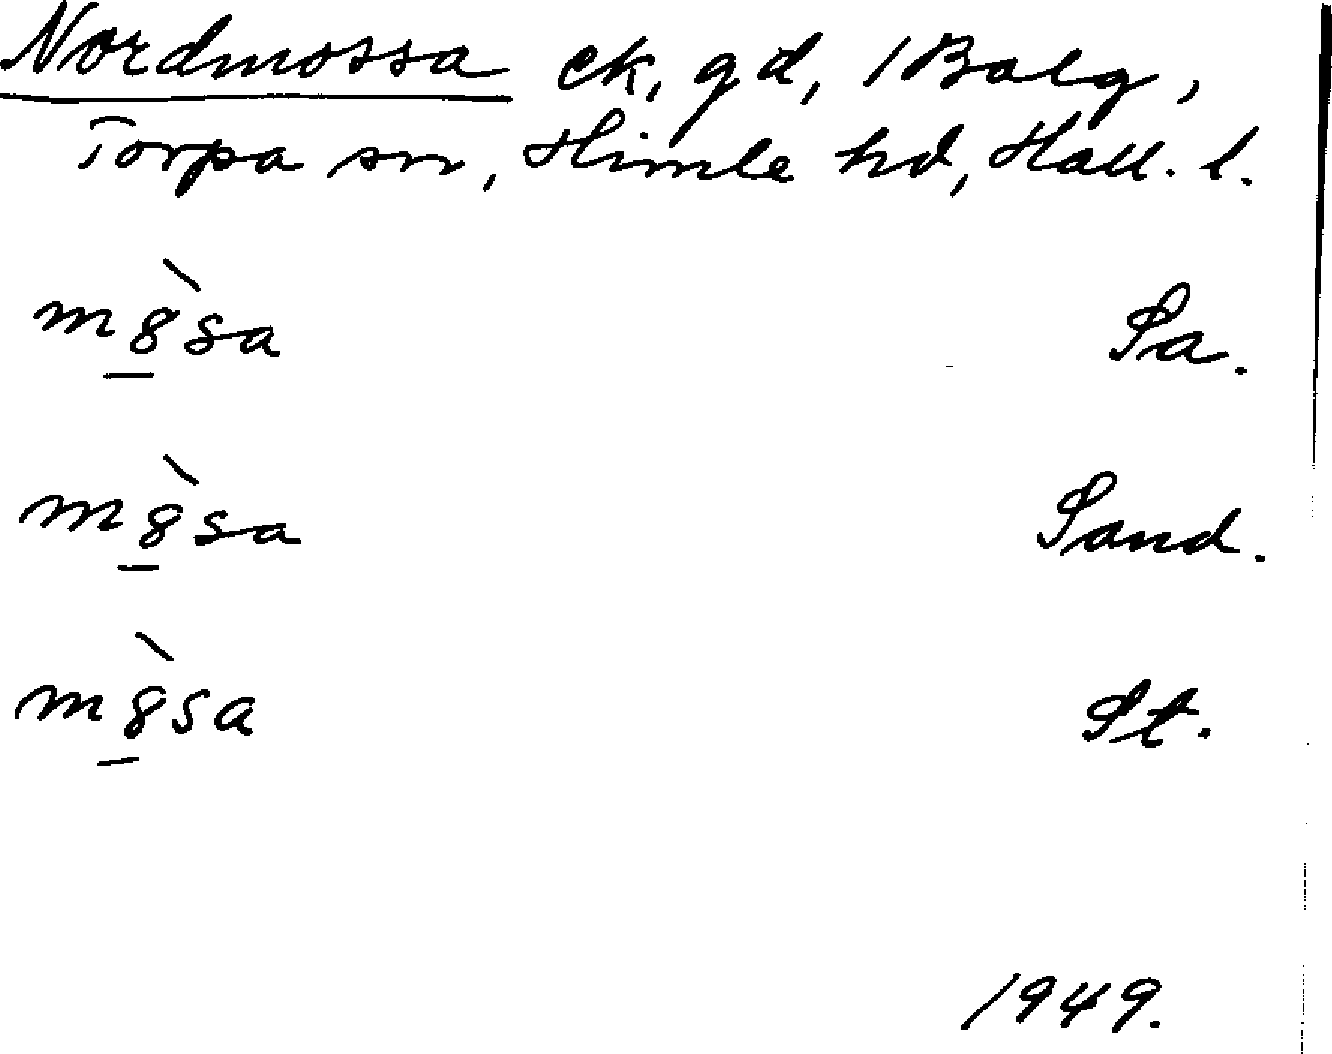 Nordmossa ck, gd, 1 Balg,
Torpa sn, Himle hd, Hall. l.
m8̲̀sa Sa.
m8̲̀sa Sand.
m8̲̀sa St.
1949.